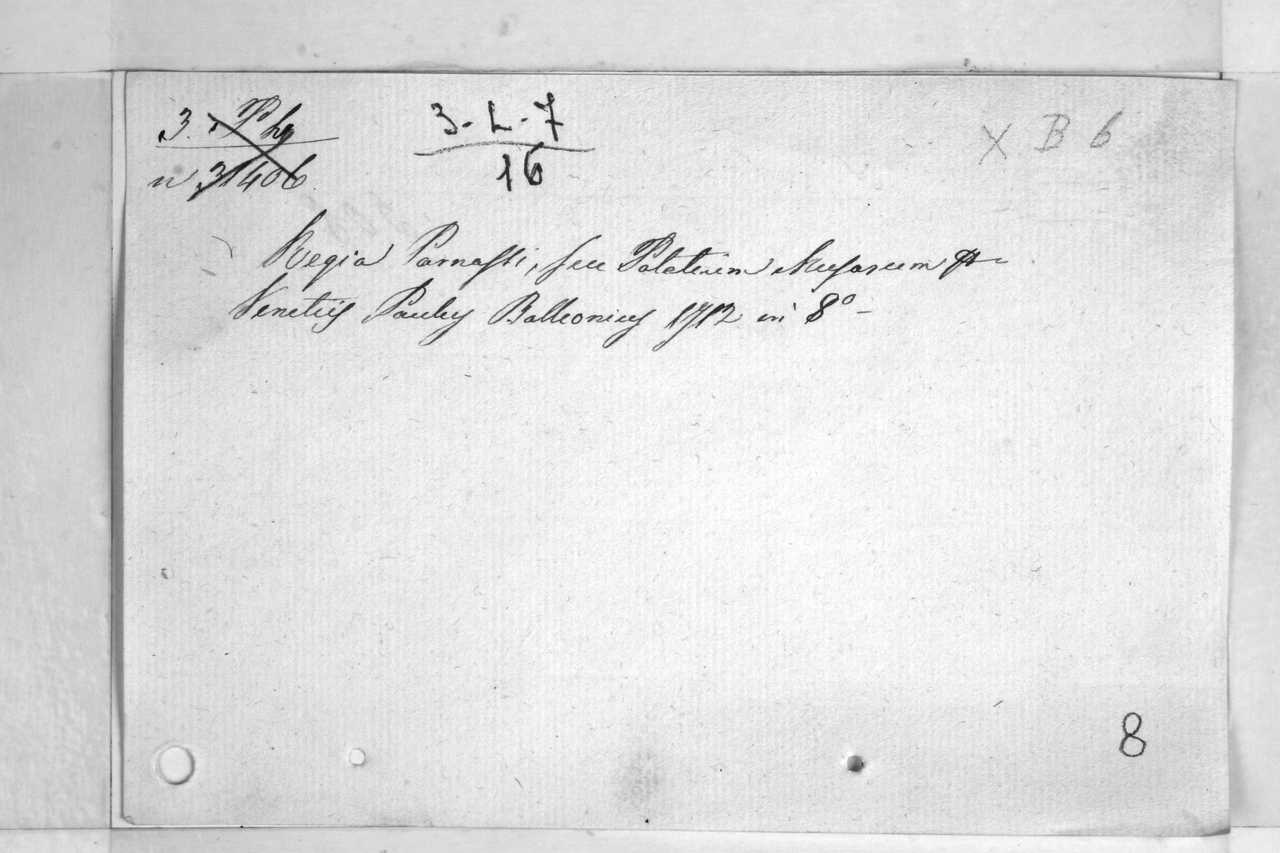 3. Phg
n 31406
3-L-7
16
X B 6
Regia Parnassi, seu Palatium Musarum &
Venetiis Paulus Balleonius 1712 in 8º
8